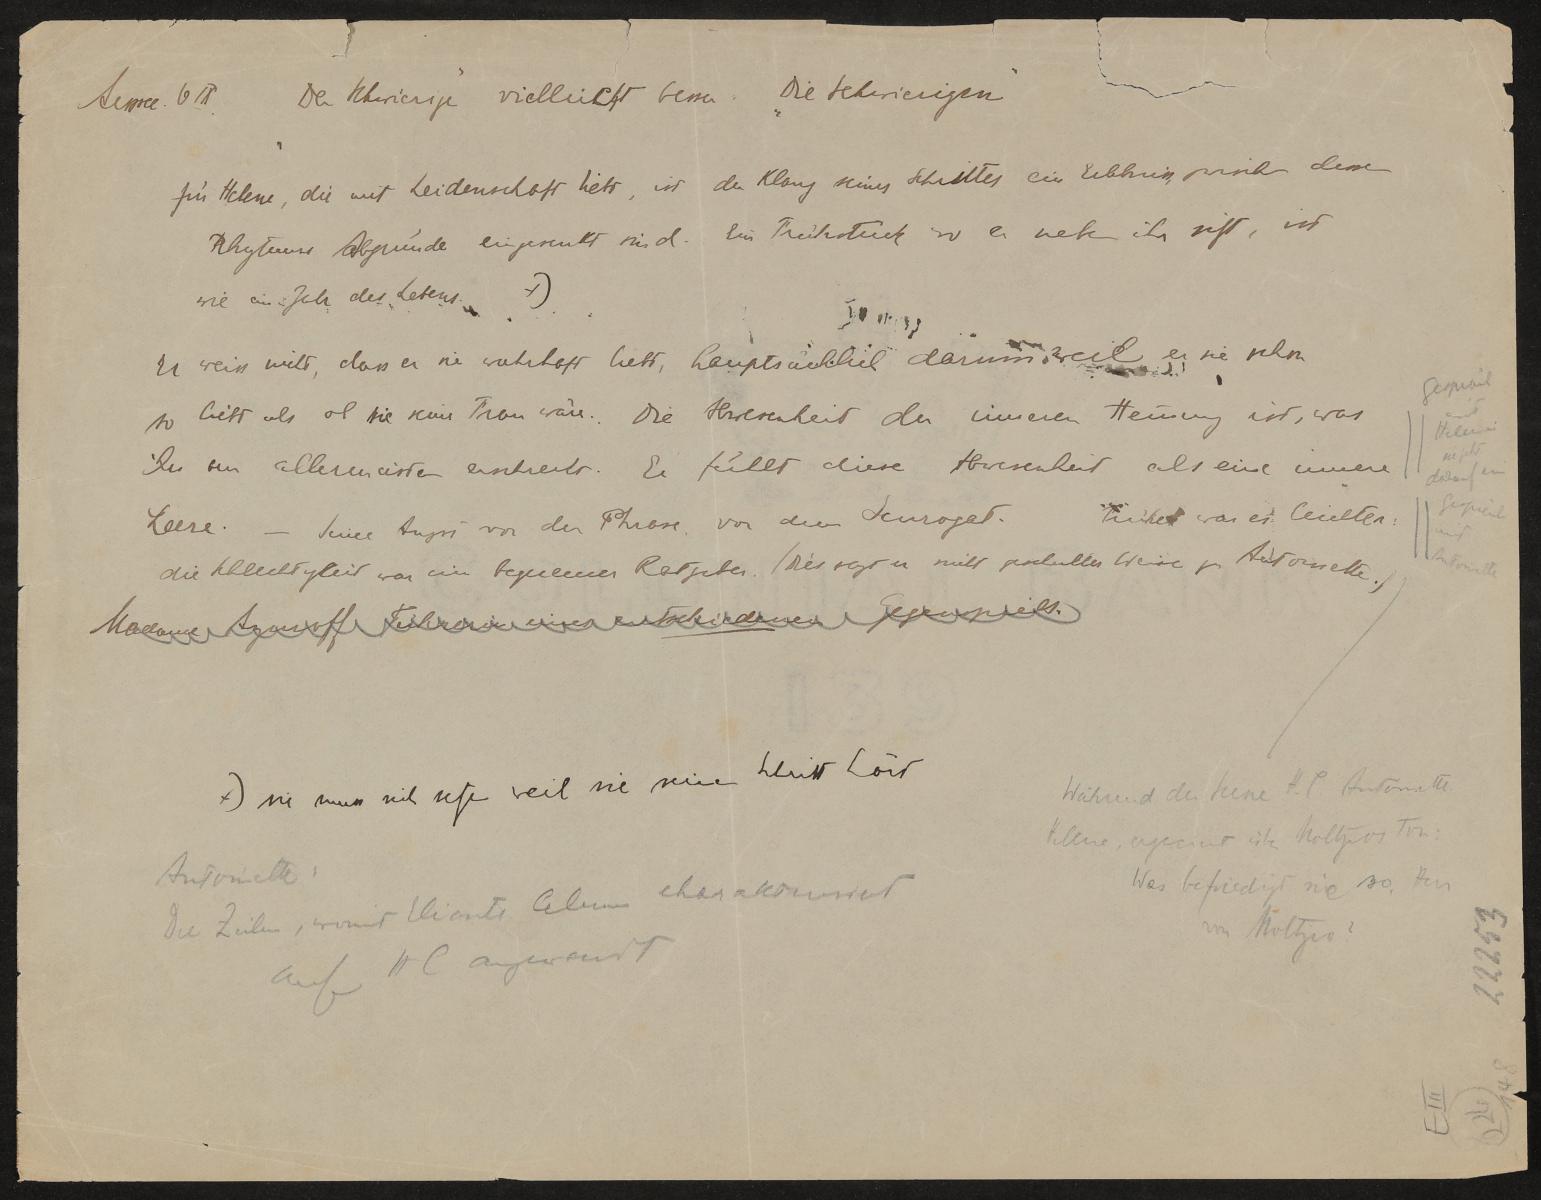 Aussee. 6 IX. Der Schwierige" vielleicht besser „Die Schwierigen"
für Helene, die mit Leidenschaft liebt, ist der Klang seines Schrittes ein Erlebnis zwischen dessen
Rhytmus Abgründe eingesenkt sind. Ein Frühstück wo er neben ihr sitzt, ist
wie ein Jahr des Lebens. +)
Er weiss nicht, dass er sie wahrhaft liebt, hauptsächlich darum, weil er sie schon
so liebt als ob sie seine Frau wäre. Die Abwesenheit der inneren Hemmung ist, was
ihn am allermeisten erschreckt. Er fühlt diese Abwesenheit als eine innere
Leere. — Seine Angst vor der Phrase, vor dem Surrogat. Früher war es leichter:
die Schlechtigkeit war ein bequemer Ratgeber. (Dies sagt er mit Weise zu Antoinette.)
Madame Führerin eines entschiedenen Gegenspiels.
Gespräch
mit
Helene
darauf ein
Gespräch
mit
Antoinette
+) sie muss sich setzen weil sie seinen Schritt hört
Während der Scene H.C. Antoinette
Helene, Noltzoos Ton:
Was befriedigt sie so, Herr
von Noltzoo?
Antoinette:
Die Zeilen, womit charakterisiert
auf H C angewandt
22253
E III
24
148